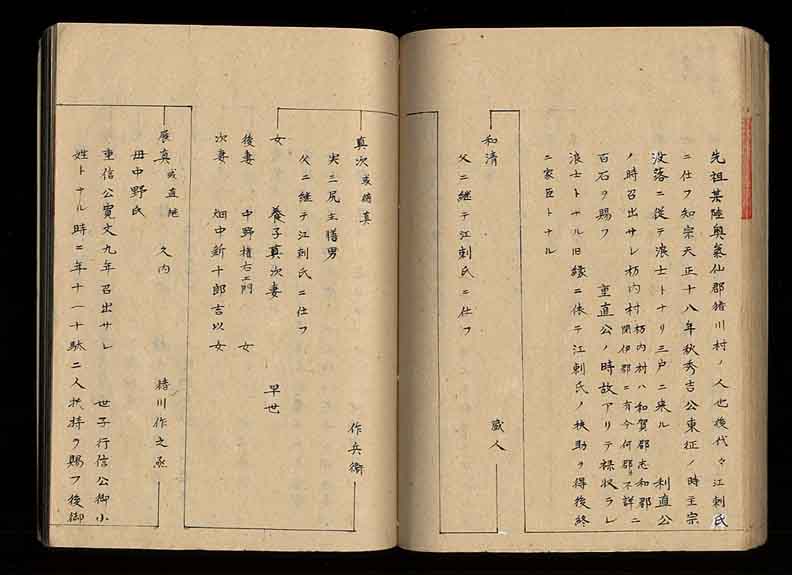 先祖某陸奥気仙郡猪川村ノ人也後代々江刺氏
ニ仕フ知宗天正十八年秋秀吉公東征ノ時主宗
没落ニ従テ浪士トナリ三戸ニ来ル 利直公
ノ時召出サレ栃内村栃内村ハ和賀郡志和郡ニ閉伊郡ニ有今何郡カ不詳ニ
百石ヲ賜フ 重直公ノ時故アリテ禄収ラレ
浪士トナル旧縁ニ依テ江刺氏ノ扶助ヲ得後終
ニ家臣トナル
和清 蔵人
父ニ継テ江刺氏ニ仕フ
真次 或備真 作兵衛
実ニ尻主膳男
父ニ継テ江刺氏ニ仕フ
女 養子真次妻 早世
後妻 中野権右エ門 女
次妻 畑中新十郎吉以女
展真 或直 久内 猪川作之丞
母中野氏
重信公寛文九年召出サレ 世子行信公御小
姓トナル時ニ年十一十駄二人扶持ヲ賜フ後御